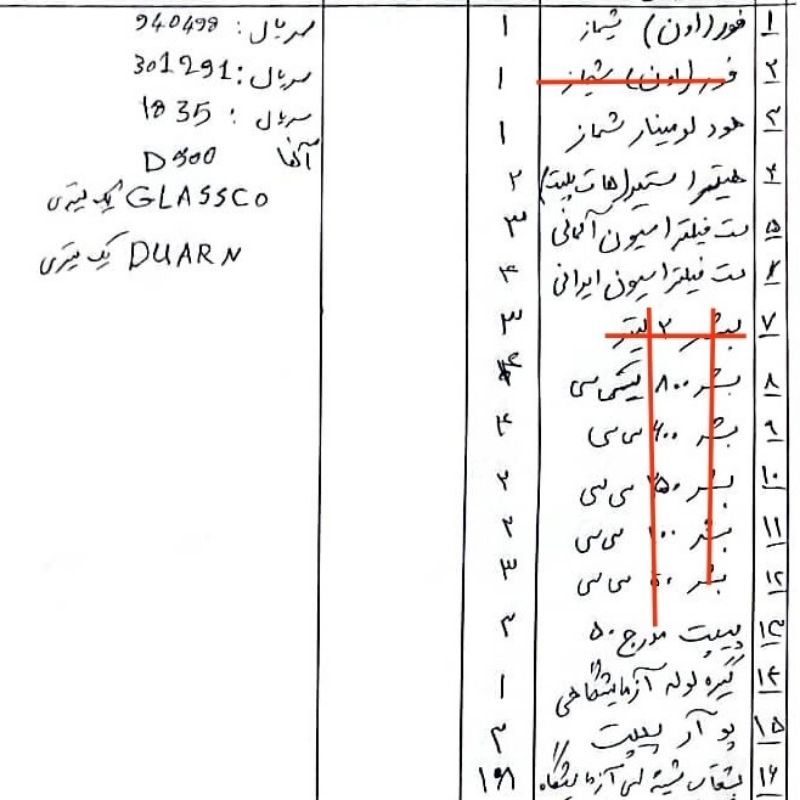 ۱ فور (اون) شیماز ۱ سریال: 940498
۲ فور (اون) شیماز ۱ سریال: 301291
۳ هود لومینار شماز ۱ سریال: 1835
۴ هیتر استیر (هات پلیت) ۲ آلفا D500
۵ ست فیلتراسیون آلمانی ۳ GLASSCO یک لیتری
۶ ست فیلتراسیون ایرانی ۴ DUARN یک لیتری
۷ بشر ۲ لیتر ۳
۸ بشر ۸۰۰ سی سی ۴
۹ بشر ۶۰۰ سی سی ۴
۱۰ بشر ۲۵۰ سی سی ۲
۱۱ بشر ۱۰۰ سی سی ۲
۱۲ بشر ۵۰ سی سی ۳
۱۳ پیپت مدرج ۵۰ ۳
۱۴ گیره لوله آزمایشگاهی ۱
۱۵ پوآر پیپت ۳
۱۶ بشقاب شیشه ای آزمایشگاه